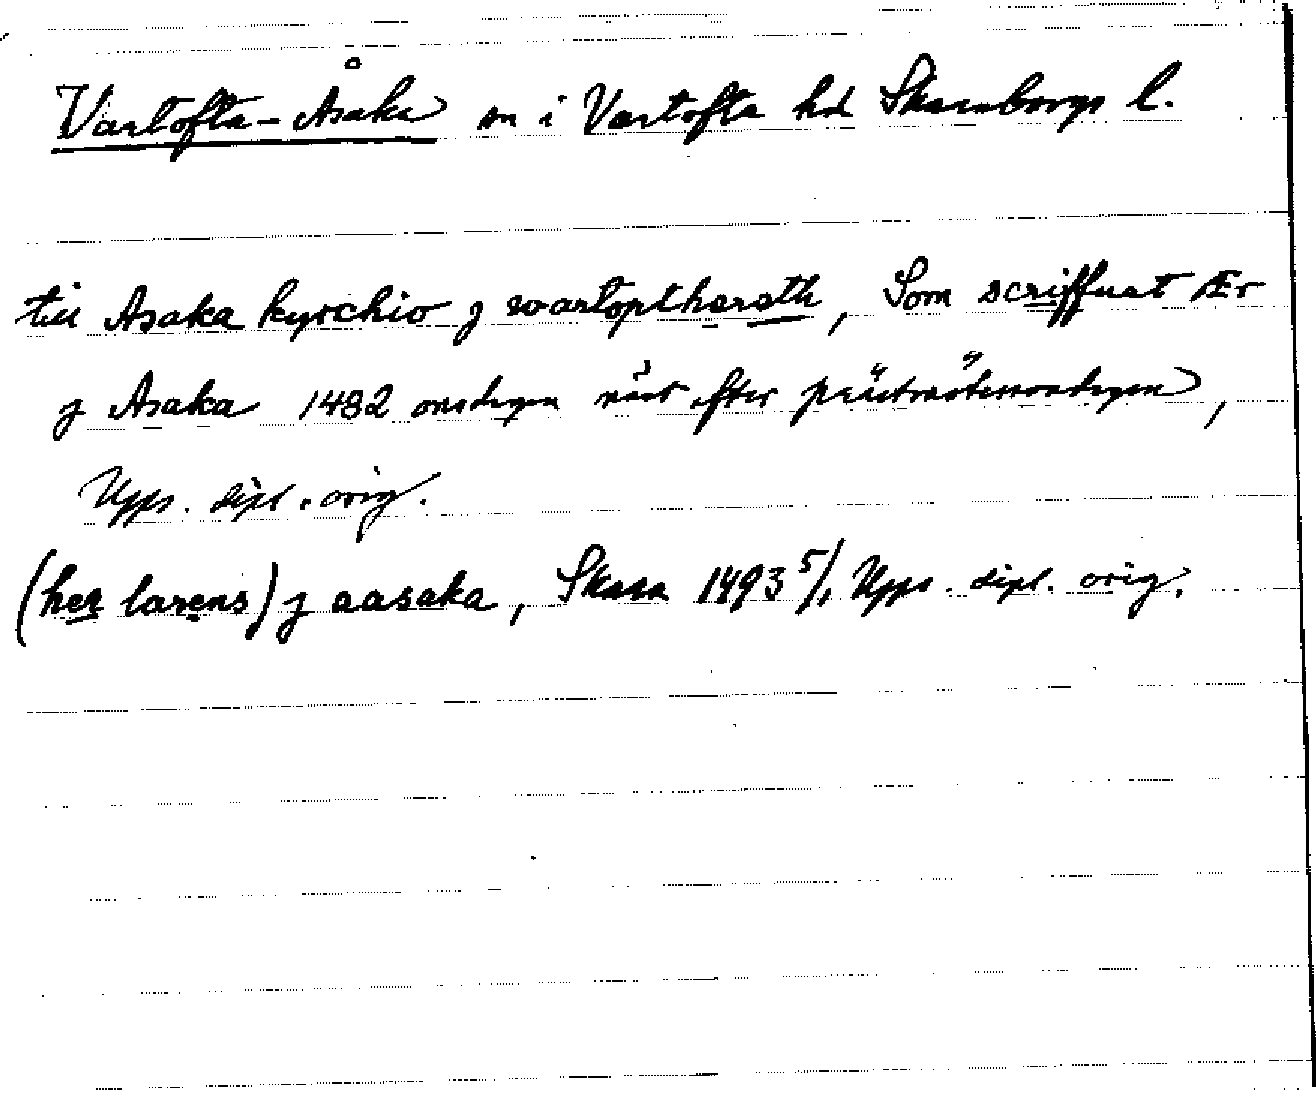 Vartofta-Åsaka sn i Vartofta hd Skaraborgs l.
till Asaka kyrchio j wartoptharath, Som scriffuat Ær
j Asaka 1482 onsdagen näst efter
Upps. dipl. orig.
(her larens) j aasaka, Skara 1493 5/1 Upps. dipl. orig.